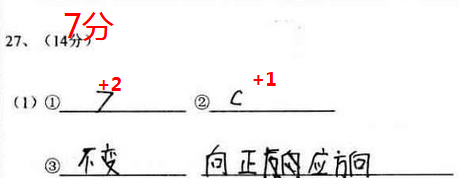 7分
27、（14分）
+2 +1
（1）① 7 ② C
③ 不变 向正反应方向